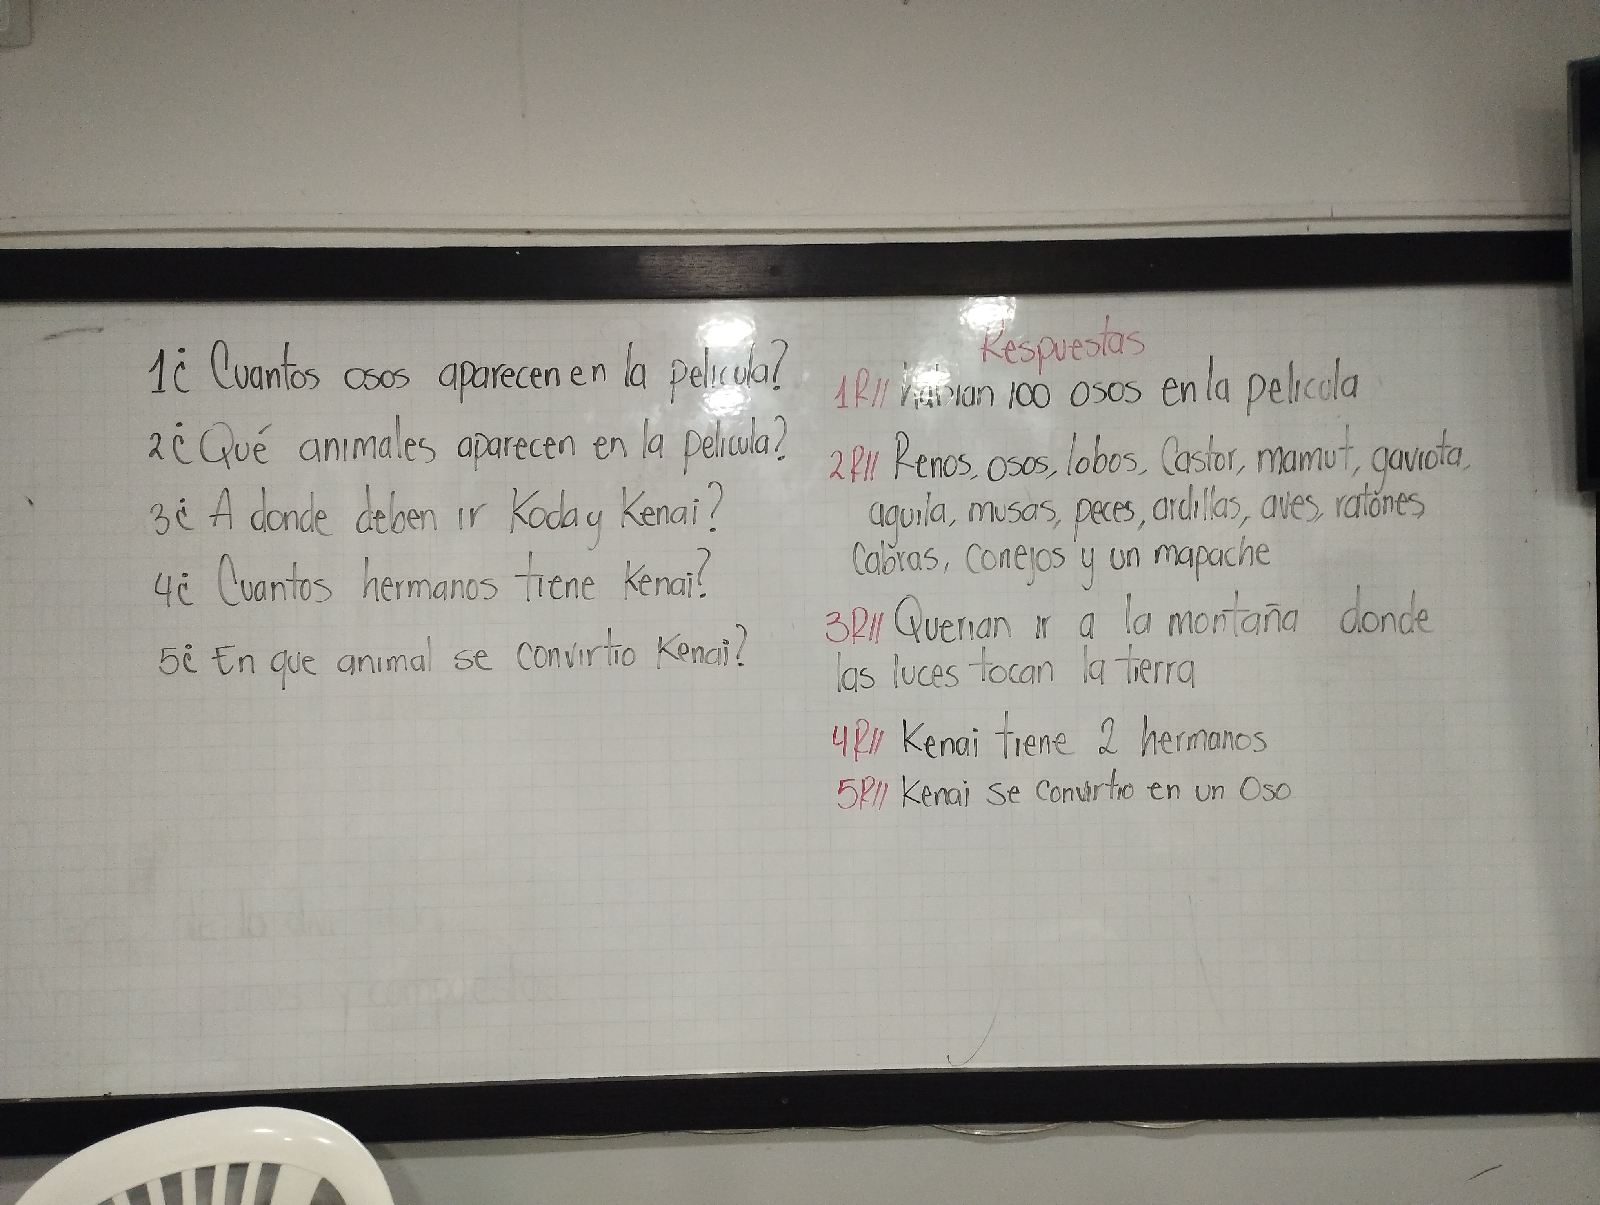 1¿ Cuantos osos aparecen en la pelicula?
2¿ Qué animales aparecen en la pelicula?
3¿ A donde deben ir Koda y Kenai?
4¿ Cuantos hermanos tiene Kenai?
5¿ En que animal se convirtio Kenai?
Respuestas
1R// habian 100 osos en la pelicola
2R// Renos, osos, lobos, Castor, mamut, gaviota,
aguila, musas, peces, ardillas, aves, ratones
Cabras, conejos y un mapache
3R// Querian ir a la montaña donde
las luces tocan la tierra
4R// Kenai tiene 2 hermanos
5R// Kenai se convirtio en un Oso